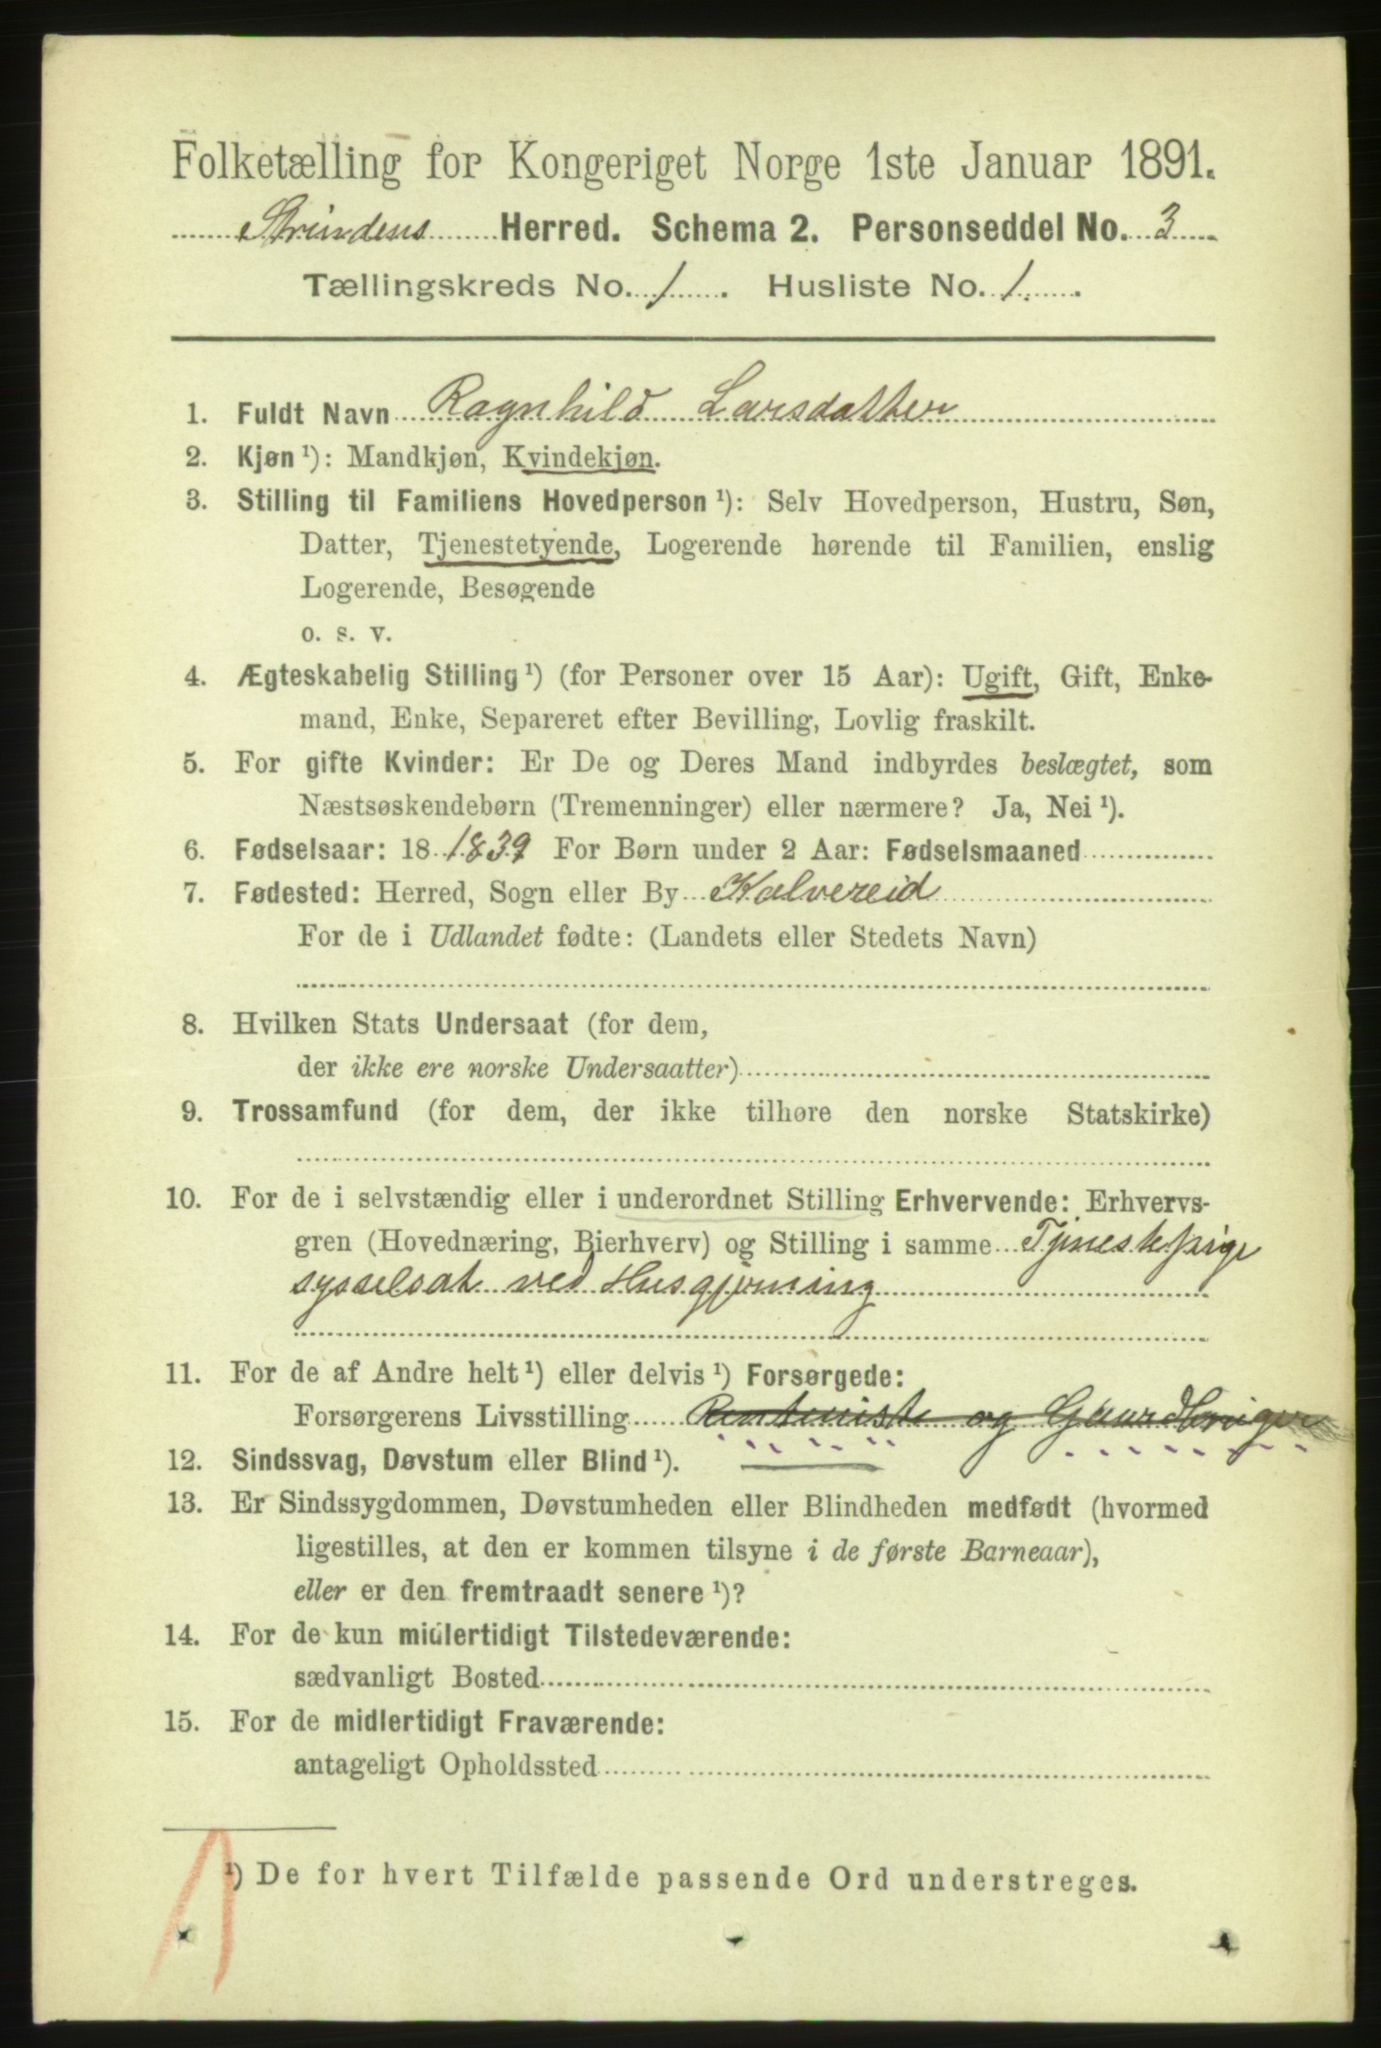 Folketælling for Kongeriget Norge 1ste Januar 1891.
Strindens Herred. Schema 2. Personseddel No. 3
Tællingskreds No. 1. Husliste No. 1.
1. Fuldt Navn Ragnhild Larsdatter
2. Kjøn ¹): Mandkjøn, Kvindekjøn.
3. Stilling til Familiens Hovedperson ¹): Selv Hovedperson, Hustru, Søn,
Datter, Tjenestetyende, Logerende hørende til Familien, enslig
Logerende, Besøgende
o. s. v.
4. Ægteskabelig Stilling ¹) (for Personer over 15 Aar): Ugift, Gift, Enke-
mand, Enke, Separeret efter Bevilling, Lovlig fraskilt.
5. For gifte Kvinder: Er De og Deres Mand indbyrdes beslægtet, som
Næstsøskendebørn (Tremenninger) eller nærmere? Ja, Nei ¹).
6. Fødselsaar: 18 1839 For Børn under 2 Aar: Fødselsmaaned
7. Fødested: Herred, Sogn eller By Kalvereid
For de i Udlandet fødte: (Landets eller Stedets Navn)
8. Hvilken Stats Undersaat (for dem,
der ikke ere norske Undersaatter)
9. Trossamfund (for dem, der ikke tilhøre den norske Statskirke)
10. For de i selvstændig eller i underordnet Stilling Erhvervende: Erhvervs-
gren (Hovednæring, Bierhverv) og Stilling i samme Tjenestepige
sysselsat ved Husgjerning
11. For de af Andre helt ¹) eller delvis ¹) Forsørgede:
Forsørgerens Livsstilling Renteniste og Gaardbruger
12. Sindssvag, Døvstum eller Blind ¹).
13. Er Sindssygdommen, Døvstumheden eller Blindheden medfødt (hvormed
ligestilles, at den er kommen tilsyne i de første Barneaar),
eller er den fremtraadt senere ¹)?
14. For de kun midlertidigt Tilstedeværende:
sædvanligt Bosted
15. For de midlertidigt Fraværende:
antageligt Opholdssted
¹) De for hvert Tilfælde passende Ord understreges.